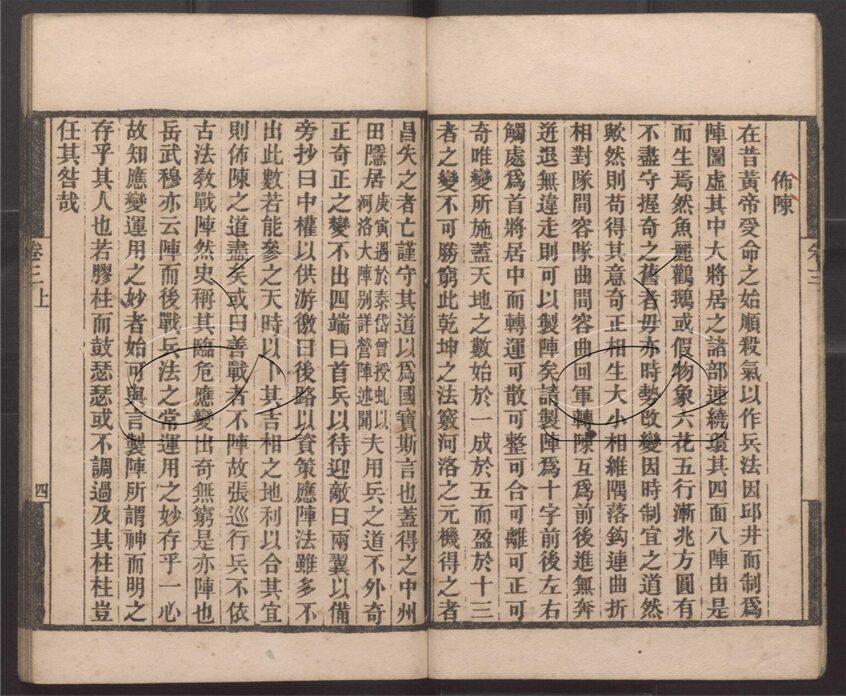 佈陳
在昔黃帝受命之始順殺氣以作兵法因邱井而制為
陣圖虛其中大將居之諸部連繞環其四面八陣由是
而生焉然魚麗鸛鵝或假物象六花五行漸兆方圓有
不盡守握奇之舊者毋亦時勢改變因時制宜之道然
歟然則苟得其意奇正相生大小相維隅落鈎連曲折
相對隊間容隊曲間容曲回軍轉隊互為前後進無奔
迸退無違走則可以製陣矣請製陣為十字前後左右
觸處為首將居中而轉運可散可整可合可離可正可
奇唯變所施蓋天地之數始於一成於五而盈於十三
者之變不可勝窮此乾坤之法竅河洛之元機得之者
昌失之者亡謹守其道以為國寶斯言也蓋得之中州
田隱居庚寅遇於泰岱曾授虬以河洛大陣別詳營陣述聞夫用兵之道不外奇
正奇正之變不出四端曰首兵以待迎敵曰兩翼以備
旁抄曰中權以供游徼曰後路以資策應陣法雖多不
出此數若能參之天時以卜其吉相之地利以合其宜
則佈陳之道盡矣或曰善戰者不陣故張巡行兵不依
古法教戰陣然史稱其臨危應變出奇無窮是亦陣也
岳武穆亦云陣而後戰兵法之常運用之妙存乎一心
故知應變運用之妙者始可與言製陣所謂神而明之
存乎其人也若膠柱而鼓瑟瑟或不調過及其柱柱豈
任其咎哉
卷三上
四